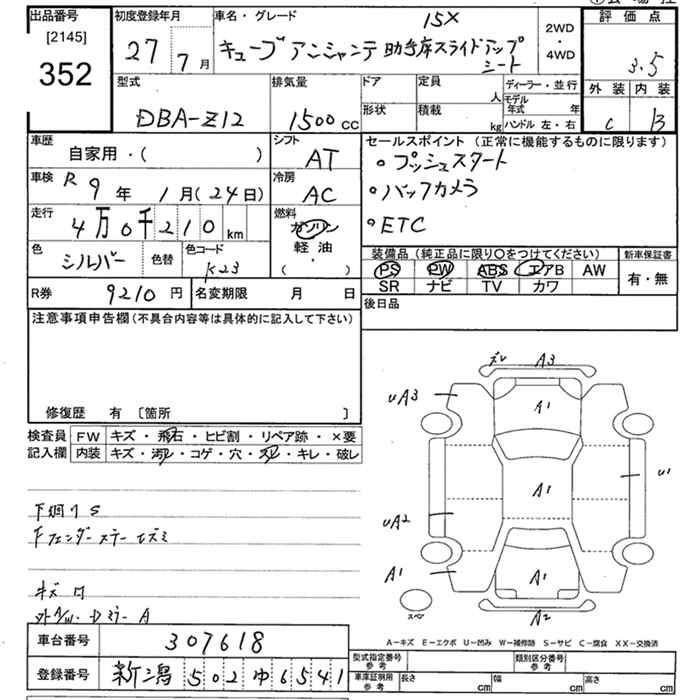 出品番号
[2145]
352
初度登録年月
27 7月
車名・グレード
15X
キューブ アンシャンテ 助手席スライドアップシート
2WD
・
4WD
評価点
3.5
外装 内装
C B
型式
DBA-Z12
排気量
1500cc
ドア 定員
人
形状 積載
kg
ディーラー・並行
モデル年式 年
ハンドル 左・右
車歴
自家用・( )
シフト
AT
車検
R9年 1月(24日)
冷房
AC
走行
4万0千210km
燃料
ガソリン
軽油
・
( )
色
シルバー
色替
色コード
K23
R券 9210円
名変期限 月 日
セールスポイント(正常に機能するものに限ります)
・プッシュスタート
・バックカメラ
・ETC
装備品(純正品に限り○をつけてください)
PS PW ABS エアB AW
SR ナビ TV カワ
新車保証書
有・無
後日品
注意事項申告欄(不具合内容等は具体的に記入して下さい)
修復歴 有 [箇所 ]
検査員記入欄
FW キズ・飛石・ヒビ割・リペア跡・×要
内装 キズ・汚レ・コゲ・穴・スレ・キレ・破レ
下回り S
キズ 凹
A3
UA3
A1
U1
A1
UA2
A1
A1
A2
スペア
A−キズ E−エクボ U−凹み W−補修跡 S−サビ C−腐食 XX−交換済
車台番号 307618
登録番号 新潟502ゆ6541
型式指定番号
参考
類別区分番号
参考
車庫証明用
参考
長さ cm
幅 cm
高さ cm